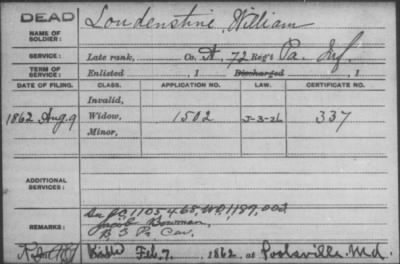 DEAD
NAME OF SOLDIER:
Loudenstine, William
SERVICE:
Late rank, Co. A, 72 Reg't Pa. Inf.
TERM OF SERVICE:
Enlisted , 1 Discharged , 1
DATE OF FILING. CLASS. APPLICATION NO. LAW. CERTIFICATE NO.
Invalid,
1862 Aug. 9 Widow, 1502 337
Minor,
ADDITIONAL SERVICES:
1105,465, 1187,003
REMARKS:
Jacob Bowman
B 3 Pa Cav.
Feb. 7. 1862, at Poolsville Md.